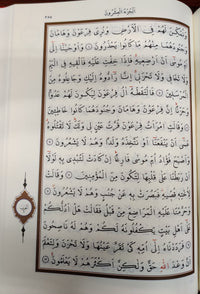 الجزء العشرون
وَنُمَكِّنَ لَهُمْ فِي ٱلْأَرْضِ وَنُرِيَ فِرْعَوْنَ وَهَٰمَٰنَ
وَجُنُودَهُمَا مِنْهُم مَّا كَانُوا۟ يَحْذَرُونَ ٦ وَأَوْحَيْنَآ إِلَىٰٓ
أُمِّ مُوسَىٰٓ أَنْ أَرْضِعِيهِ فَإِذَا خِفْتِ عَلَيْهِ فَأَلْقِيهِ فِي ٱلْيَمِّ
وَلَا تَخَافِي وَلَا تَحْزَنِيٓ إِنَّا رَآدُّوهُ إِلَيْكِ وَجَاعِلُوهُ مِنَ
ٱلْمُرْسَلِينَ ٧ فَٱلْتَقَطَهُۥٓ ءَالُ فِرْعَوْنَ لِيَكُونَ لَهُمْ عَدُوًّا
وَحَزَنًا إِنَّ فِرْعَوْنَ وَهَٰمَٰنَ وَجُنُودَهُمَا كَانُوا۟ خَٰطِـِٔينَ
٨ وَقَالَتِ ٱمْرَأَتُ فِرْعَوْنَ قُرَّتُ عَيْنٍ لِّي وَلَكَ لَا تَقْتُلُوهُ
عَسَىٰٓ أَن يَنفَعَنَآ أَوْ نَتَّخِذَهُۥ وَلَدًا وَهُمْ لَا يَشْعُرُونَ ٩
وَأَصْبَحَ فُؤَادُ أُمِّ مُوسَىٰ فَٰرِغًا إِن كَادَتْ لَتُبْدِي بِهِۦ لَوْلَآ
أَن رَّبَطْنَا عَلَىٰ قَلْبِهَا لِتَكُونَ مِنَ ٱلْمُؤْمِنِينَ ١٠ وَقَالَتْ
لِأُخْتِهِۦ قُصِّيهِ فَبَصُرَتْ بِهِۦ عَن جُنُبٍ وَهُمْ لَا يَشْعُرُونَ ١١
وَحَرَّمْنَا عَلَيْهِ ٱلْمَرَاضِعَ مِن قَبْلُ فَقَالَتْ هَلْ أَدُلُّكُمْ
عَلَىٰٓ أَهْلِ بَيْتٍ يَكْفُلُونَهُۥ لَكُمْ وَهُمْ لَهُۥ نَٰصِحُونَ
١٢ فَرَدَدْنَٰهُ إِلَىٰٓ أُمِّهِۦ كَيْ تَقَرَّ عَيْنُهَا وَلَا تَحْزَنَ وَلِتَعْلَمَ
أَنَّ وَعْدَ ٱللَّهِ حَقٌّ وَلَٰكِنَّ أَكْثَرَهُمْ لَا يَعْلَمُونَ ١٣